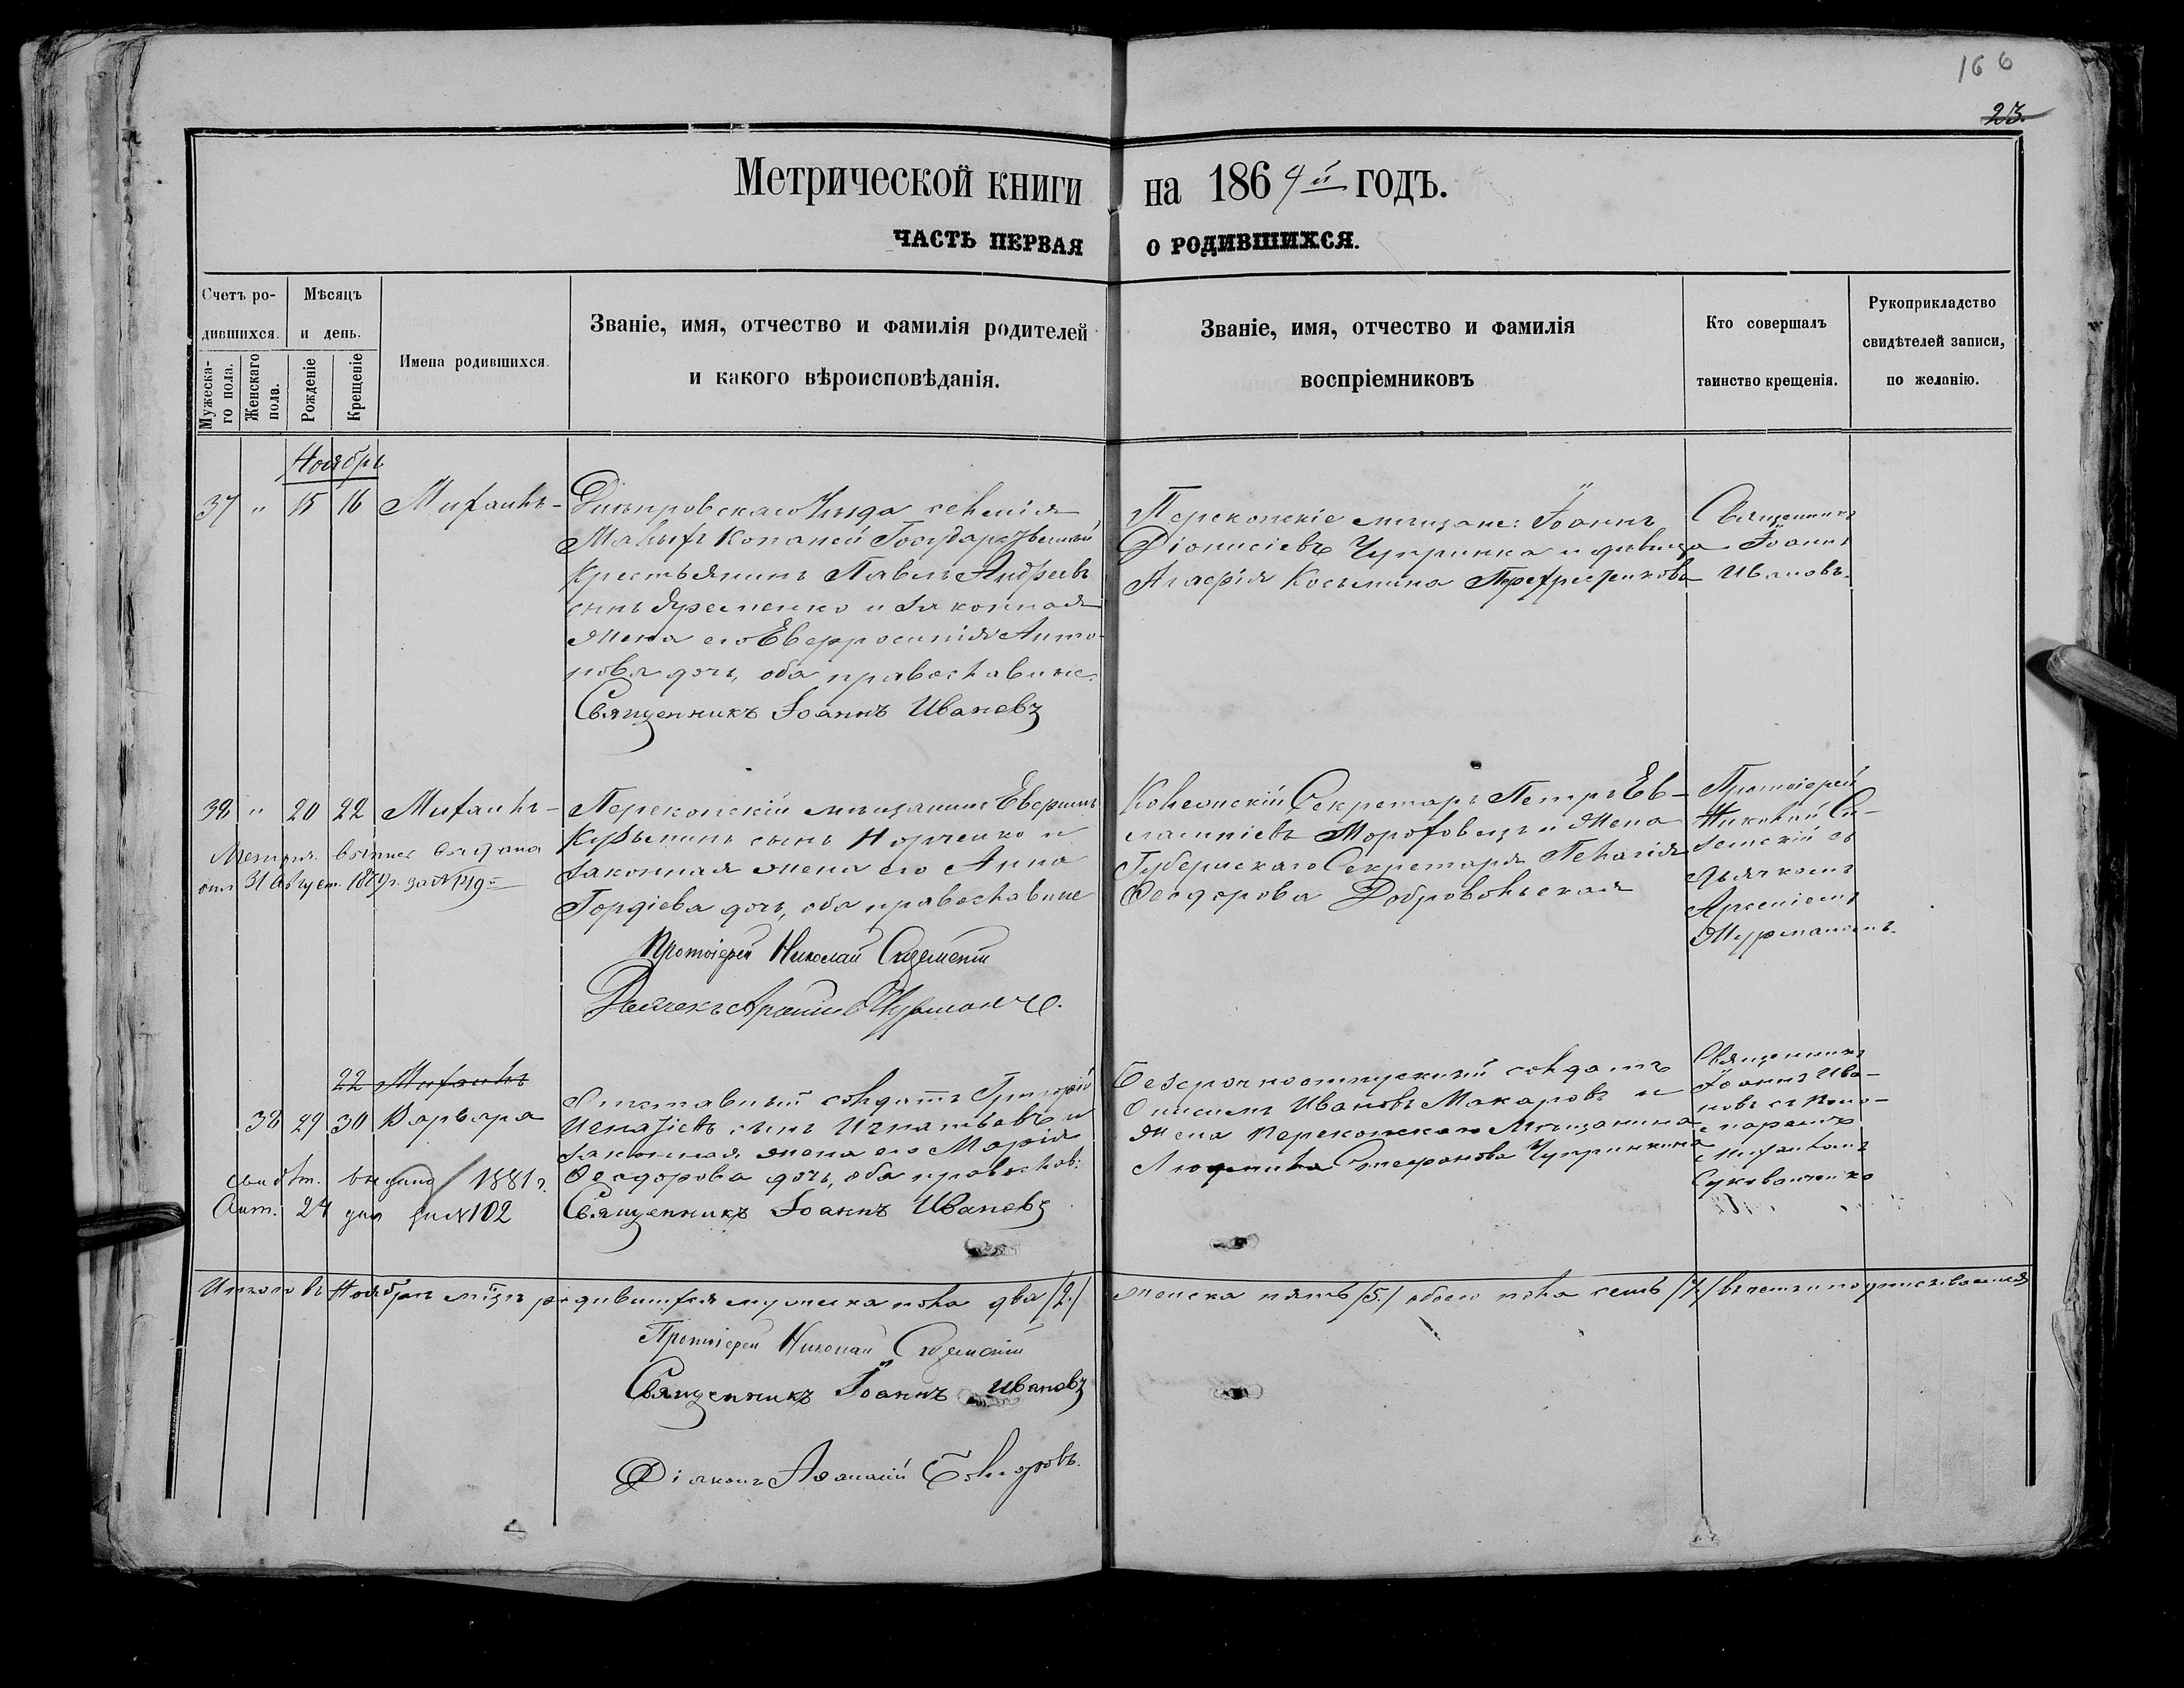 166
23.
Метрической книги на 1864й годъ.
ЧАСТЬ ПЕРВАЯ О РОДИВШИХСЯ.
Счетъ ро-
дившихся.
Мужеска-
го пола.
Женскаго
пола.
Мѣсяцъ
и день.
Рожденіе
Крещеніе
Имена родившихся.
Званіе, имя, отчество и фамилія родителей
и какого вѣроисповѣданія.
Званіе, имя, отчество и фамилія
воспріемниковъ
Кто совершалъ
таинство крещенія.
Рукоприкладство
свидѣтелей записи,
по желанію.
Ноябрь
37 " 15 16 Михаилъ-
Днѣпровскаго Уѣзда селенія
Малыхъ Копаней Государственный
Крестьянинъ Павелъ Андреевъ
сынъ Яременко и законная
жена его Евфросинія Анто-
нова дочь, оба православные.
Священникъ Іоаннъ Ивановъ
Перекопскіе мѣщане: Іоаннъ
Діонисіевъ Чупринка и дѣвица
Агафія Косьмина
Священникъ
Іоаннъ
Ивановъ.
38 " 20 22 Михаилъ-
Метрич. выпись выдана
31 Август. 1879г. за №149
Перекопскій мѣщанинъ
Кузьминъ сынъ Норченко и
законная жена его Анна
Гордіева дочь, оба православные
Протоіерей Николай
Дьячекъ Арсеній
Секретарь Петръ Ев-
и Жена
Губернскаго Секретаря Пелагія
Феодорова Добровольская
Протоіерей
Николай
съ
Дьячкомъ
Арсеніемъ
22 Михаилъ
38 29 30 Варвара
свидѣт. выдано 1881г.
24 дня за №102
Отставный солдатъ Григорій
сынъ Игнатьевъ и
законная жена его Марія
Феодорова дочь, оба православ:
Священникъ Іоаннъ Ивановъ
Безсрочноотпускный солдатъ
Онисимъ Ивановъ Макаровъ и
жена Перекопскаго Мѣщанина
Стефанова Чупринкина
Священникъ
Іоаннъ Ива-
новъ съ Поно-
маремъ
Михаиломъ
Итого въ Ноябрѣ мѣсяцѣ родившихся мужеска пола два /2./ женска пять /5./ обоего пола семь /7./ въ чемъ и подписываемся
Протоіерей Николай
Священникъ Іоаннъ Ивановъ
Діаконъ Афанасій